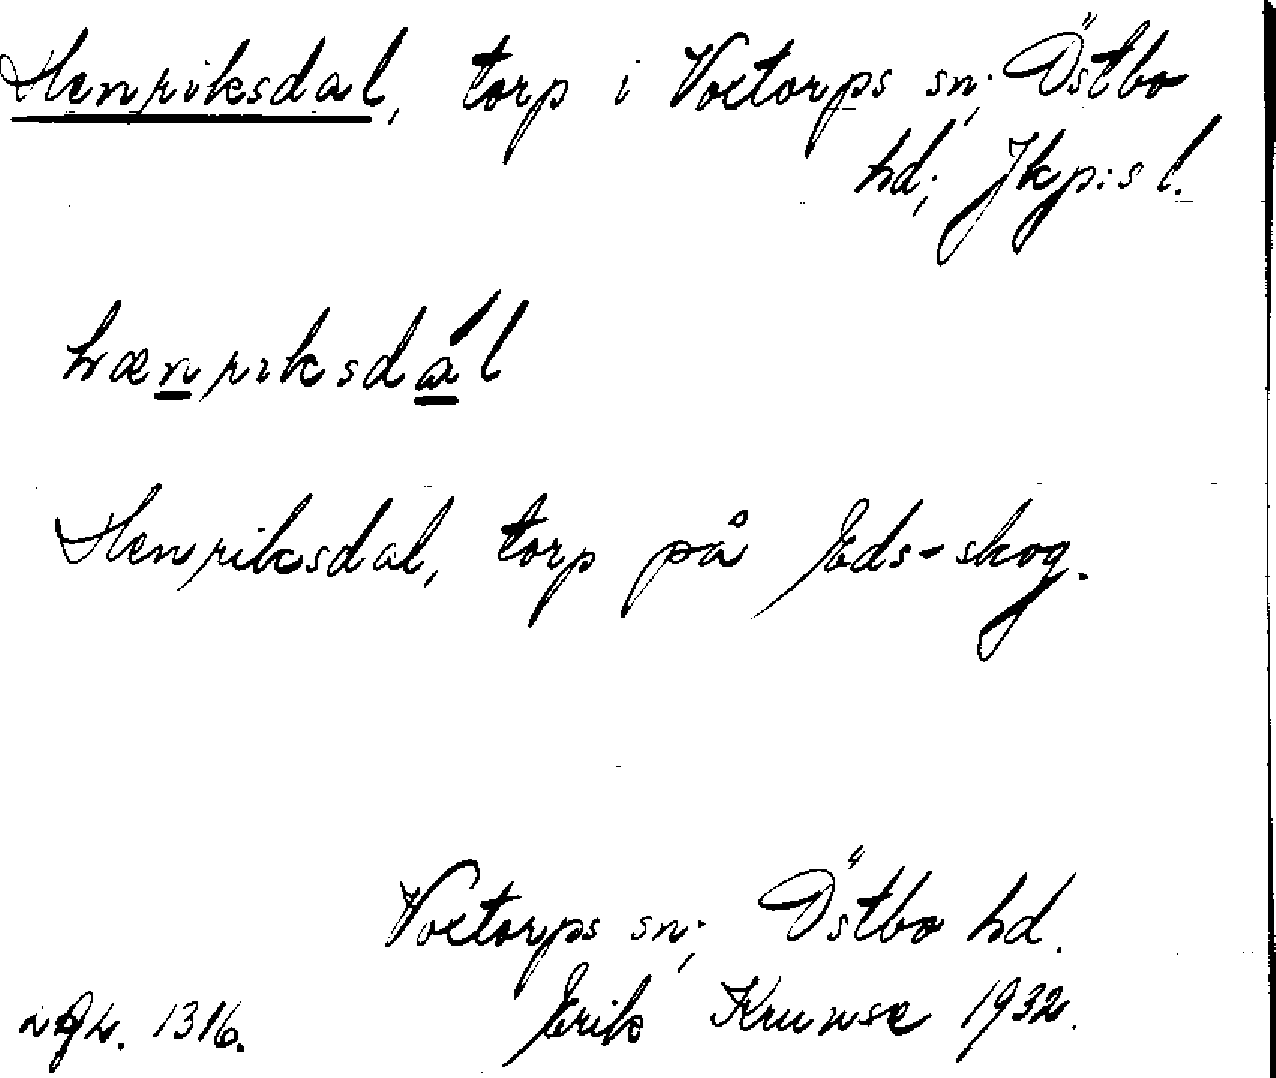 Henriksdal, torp i Voxtorps sn; Östbo
hd; Jkp:s l.
hænriksdál
Henriksdal, torp på Eds-skog.
Voxtorps sn; Östbo hd.
1316. Erik Krunse 1932.